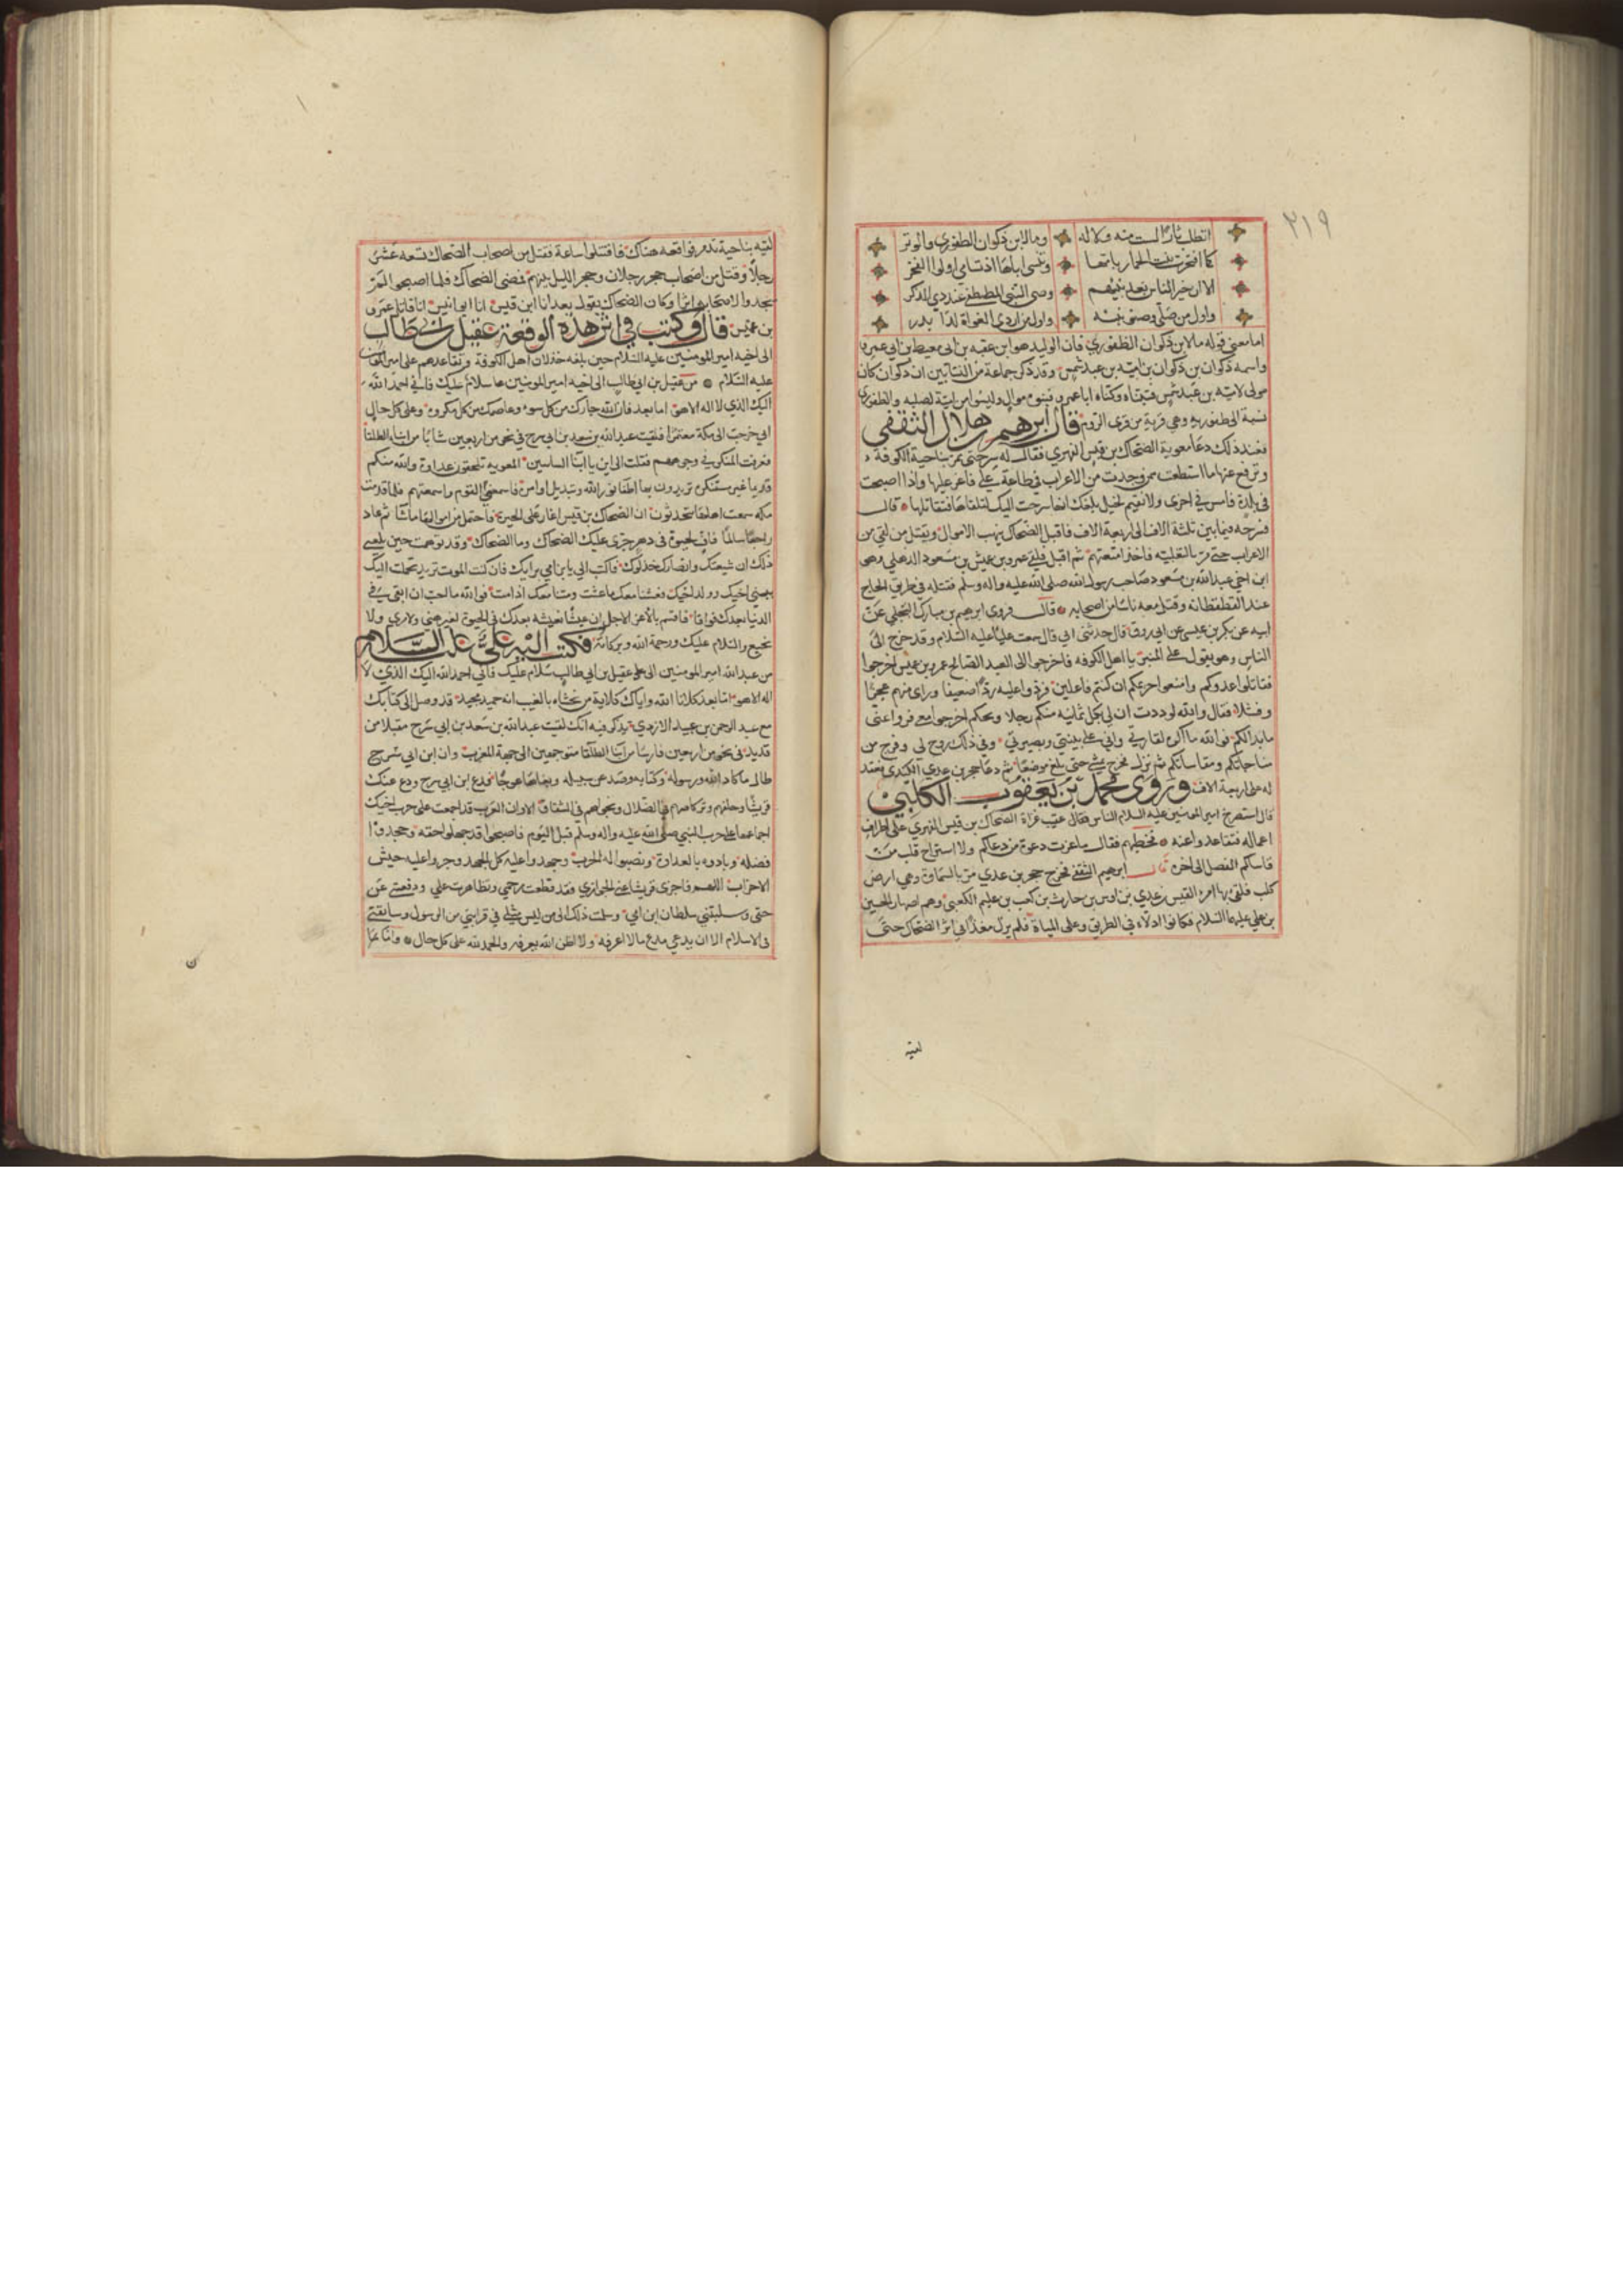 ٣١٩
اتطلب ثارا لست منه ولا له ومالابن ذكوان الطفوري والوتر
كما افتخرت بنت الحمار بامها وتنسى اباها اذ تسامى اولوا الفخر
الا ان خير الناس بعد نبيهم وصي النبي المصطفى عند ذي الذكر
واول من صلى وصنو نبيه واول من اردى الغواة لدا بدر
اما معنى قوله مالابن ذكوان الطفوري فان الوليد هو ابن عقبه بن ابي معيط بن ابي عمرو
واسمه ذكوان بن اميه بن عبد شمس وقد ذكر جماعة من النسابين ان ذكوان كان
مولى لاميه بن عبد شمس فتبناه وكناه ابا عمرو فبنوه موال وليسوا من امية لصلبه والطفوري
نسبة الى طفوريه وهي قرية من قرى الروم قال ابرهيم بن هلال الثقفي
فعند ذلك دعا معوية الضحاك بن قيس الفهري فقال له سر حتى تمر بناحية الكوفة
وترفع عنها ما استطعت فمن وجدت من الاعراب في طاعة علي فاغر عليها واذا اصبحت
في بلدة فامس في اخرى ولا تقيم لخيل بلغك انها سرحت اليك لتلقاها فتقاتلها قال
فسرحه فيما بين ثلثة الاف الى اربعة الاف فاقبل الضحاك ينهب الاموال ويقتل من لقي من
الاعراب حتى مر بالثعلبيه فاخذ امتعتهم ثم اقبل فلقي عمرو بن عميس بن مسعود الذهلي وهو
ابن اخي عبدالله بن مسعود صاحب رسول الله صلى الله عليه واله وسلم فقتله في طريق الحاج
عند القطقطانه وقتل معه ناسا من اصحابه قال فروى ابرهيم بن مبارك البجلي عن
ابيه عن بكر بن عيسى عن ابي روق قال حدثني ابي قال سمعت عليا عليه السلام وقد خرج الى
الناس وهو يقول على المنبر يا اهل الكوفه اخرجوا الى العبد الصالح عمرو بن عميس اخرجوا
فقاتلوا عدوكم وامنعوا حريمكم ان كنتم فاعلين فردوا عليه ردا ضعيفا وراى منهم عجزا
وفشلا فقال والله لوددت ان لي بكل ثمانيه منكم رجلا ويحكم اخرجوا معي ثم فروا عني
ما بدا لكم فوالله ما اكره لقا ربي واني على بينتي وبصيرتي وفي ذلك روح لي وفرج من
مناجاتكم ومقاساتكم ثم نزل فخرج يمشي حتى بلغ موضعا ثم دعا حجر بن عدي الكندي فعقد
له على اربعة الاف وروى محمد بن يعقوب الكلبي
قال استصرخ امير المومنين عليه السلام الناس فقال عقيب غزاة الضحاك بن قيس الفهري على اطراف
اعماله فتقاعدوا عنه فخطبهم فقال ما عزت دعوة من دعاكم ولا استراح قلب من
قاساكم الفصل الى اخره قال ابرهيم الثقفي فخرج حجر بن عدي مر بالسماوة وهي ارض
كلب فلقي بها امرؤ القيس بن عدي بن اوس بن حارث بن كعب بن عليم الكعبي وهم اصهار الحسين
بن علي عليهما السلام فكانوا ادلاءه في الطريق وعلى المياه فلم يزل مغذا في اثر الضحاك حتى
لقيه
لقيه بناحية تدمر فواقعه هناك فاقتتلوا ساعة فقتل من اصحاب الضحاك تسعه عشر
رجلا وقتل من اصحاب حجر رجلان وحجز الليل بينهم فمضى الضحاك فلما اصبحوا لم
يجدوا لاصحابه اثرا وكان الضحاك يقول بعد انا ابن قيس انا ابو انيس انا قاتل عمرو
بن عميس قال وكتب في اثر هذه الوقعة عقيل بن ابي طالب
الى اخيه امير المومنين عليه السلام حين بلغه خذلان اهل الكوفة وتقاعدهم
عليه السلام من عقيل بن ابي طالب الى اخيه امير المومنين سلام عليك فاني احمد الله
اليك الذي لا اله الا هو اما بعد فان الله جارك من كل سوء وعاصمك من كل مكروه وعلى كل حال
اني خرجت الى مكة معتمرا فلقيت عبدالله بن سعد بن ابي سرح في نحو من اربعين شابا من ابناء الطلقا
فعرفت المنكر في وجوههم فقلت الى اين يا ابنا الشانئين المعويه تلحقون عداوة والله منكم
قديما غير مستنكرة تريدون بها اطفا نور الله وتبديل امره فاسمعني القوم واسمعتهم فلما قدمت
مكه سمعت اهلها يتحدثون ان الضحاك بن قيس اغار على الحيرة فاحتمل من اموالها ما شا ثم عاد
راجعا سالما فاف لحيوة في دهر جرى عليك الضحاك وما الضحاك وقد توهمت حين بلغني
ذلك ان شيعتك وانصارك خذلوك فاكتب الي يا بن امي برايك فان كنت الموت تريد تحملت اليك
ببني اخيك وولد اخيك فعشنا معك ما عشت ومتنا معك اذا مت فوالله ما احب ان ابقى في
الدنيا بعدك فواقا فاقسم بالاعز الاجل ان عيشا نعيشه بعدك في الحيوة لغير هني ولا مري ولا
نجيع والسلام عليك ورحمة الله وبركاته فكتب اليه علي عليه السلام
من عبد الله امير المومنين الى عقيل بن ابي طالب سلام عليك فاني احمد الله اليك الذي لا
اله الا هو اما بعد كلانا الله واياك كلاية من يخشاه بالغيب انه حميد مجيد قد وصل الي كتابك
مع عبد الرحمن بن عبيد الازدي تذكر فيه انك لقيت عبدالله بن سعد بن ابي سرح مقبلا من
قديد في نحو من اربعين فارسا من ابنا الطلقا متوجهين الى جهة المغرب وان ابن ابي سرح
طال ما كاد الله ورسوله وكتابه وصد عن سبيله وبغاها عوجا فدع ابن ابي سرح ودع عنك
قريشا وخلهم وتركاضهم في الضلال وتجوالهم في الشقاق الا وان العرب قد اجمعت على حرب اخيك
اجماعها على حرب النبي صلى الله عليه واله وسلم قبل اليوم فاصبحوا قد جهلوا حقه وجحدوا
فضله وبادوه بالعداوة ونصبوا له الحرب وجهدوا عليه كل الجهد وجروا عليه جيش
الاحزاب اللهم فاجزى قريشا عني الجوازي فقد قطعت رحمي وتظاهرت علي ودفعتني عن
حقي وسلبتني سلطان ابن امي وسلمت ذلك الى من ليس مثلي في قرابتي من الرسول وسابقتي
في الاسلام الا ان يدعي مدع مالا اعرفه ولا اظن الله يعرفه والحمد لله على كل حال واما ما